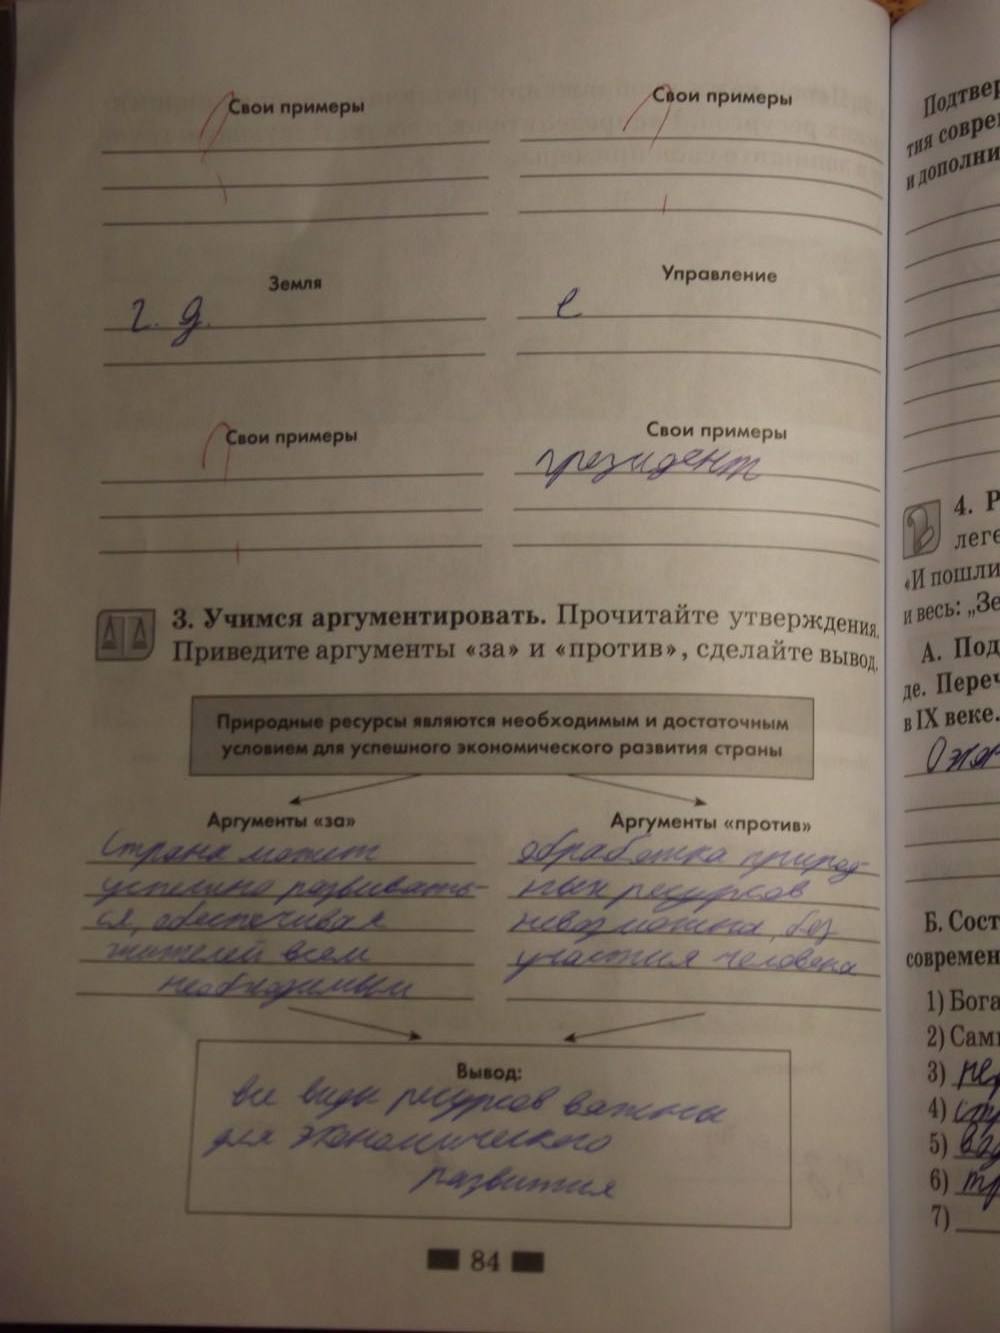 Свои примеры
Свои примеры
Земля
г. д.
Управление
е
Свои примеры
Свои примеры
президент
3. Учимся аргументировать. Прочитайте утверждения.
Приведите аргументы «за» и «против», сделайте вывод.
Природные ресурсы являются необходимым и достаточным
условием для успешного экономического развития страны
Аргументы «за»
Страна может
успешно развивать-
ся, обеспечивая
жителей всем
необходимым
Аргументы «против»
обработка природ-
ных ресурсов
невозможна, без
участия человека
Вывод:
все виды ресурсов важны
для экономического
развития
84
Подтвер
тия соврем
и дополни
4. Р
леге
«И пошли
и весь: „Зе
А. Под
де. Переч
в IX веке.
Б. Сост
современ
1) Бога
2) Сами
3)
4)
5)
6)
7)